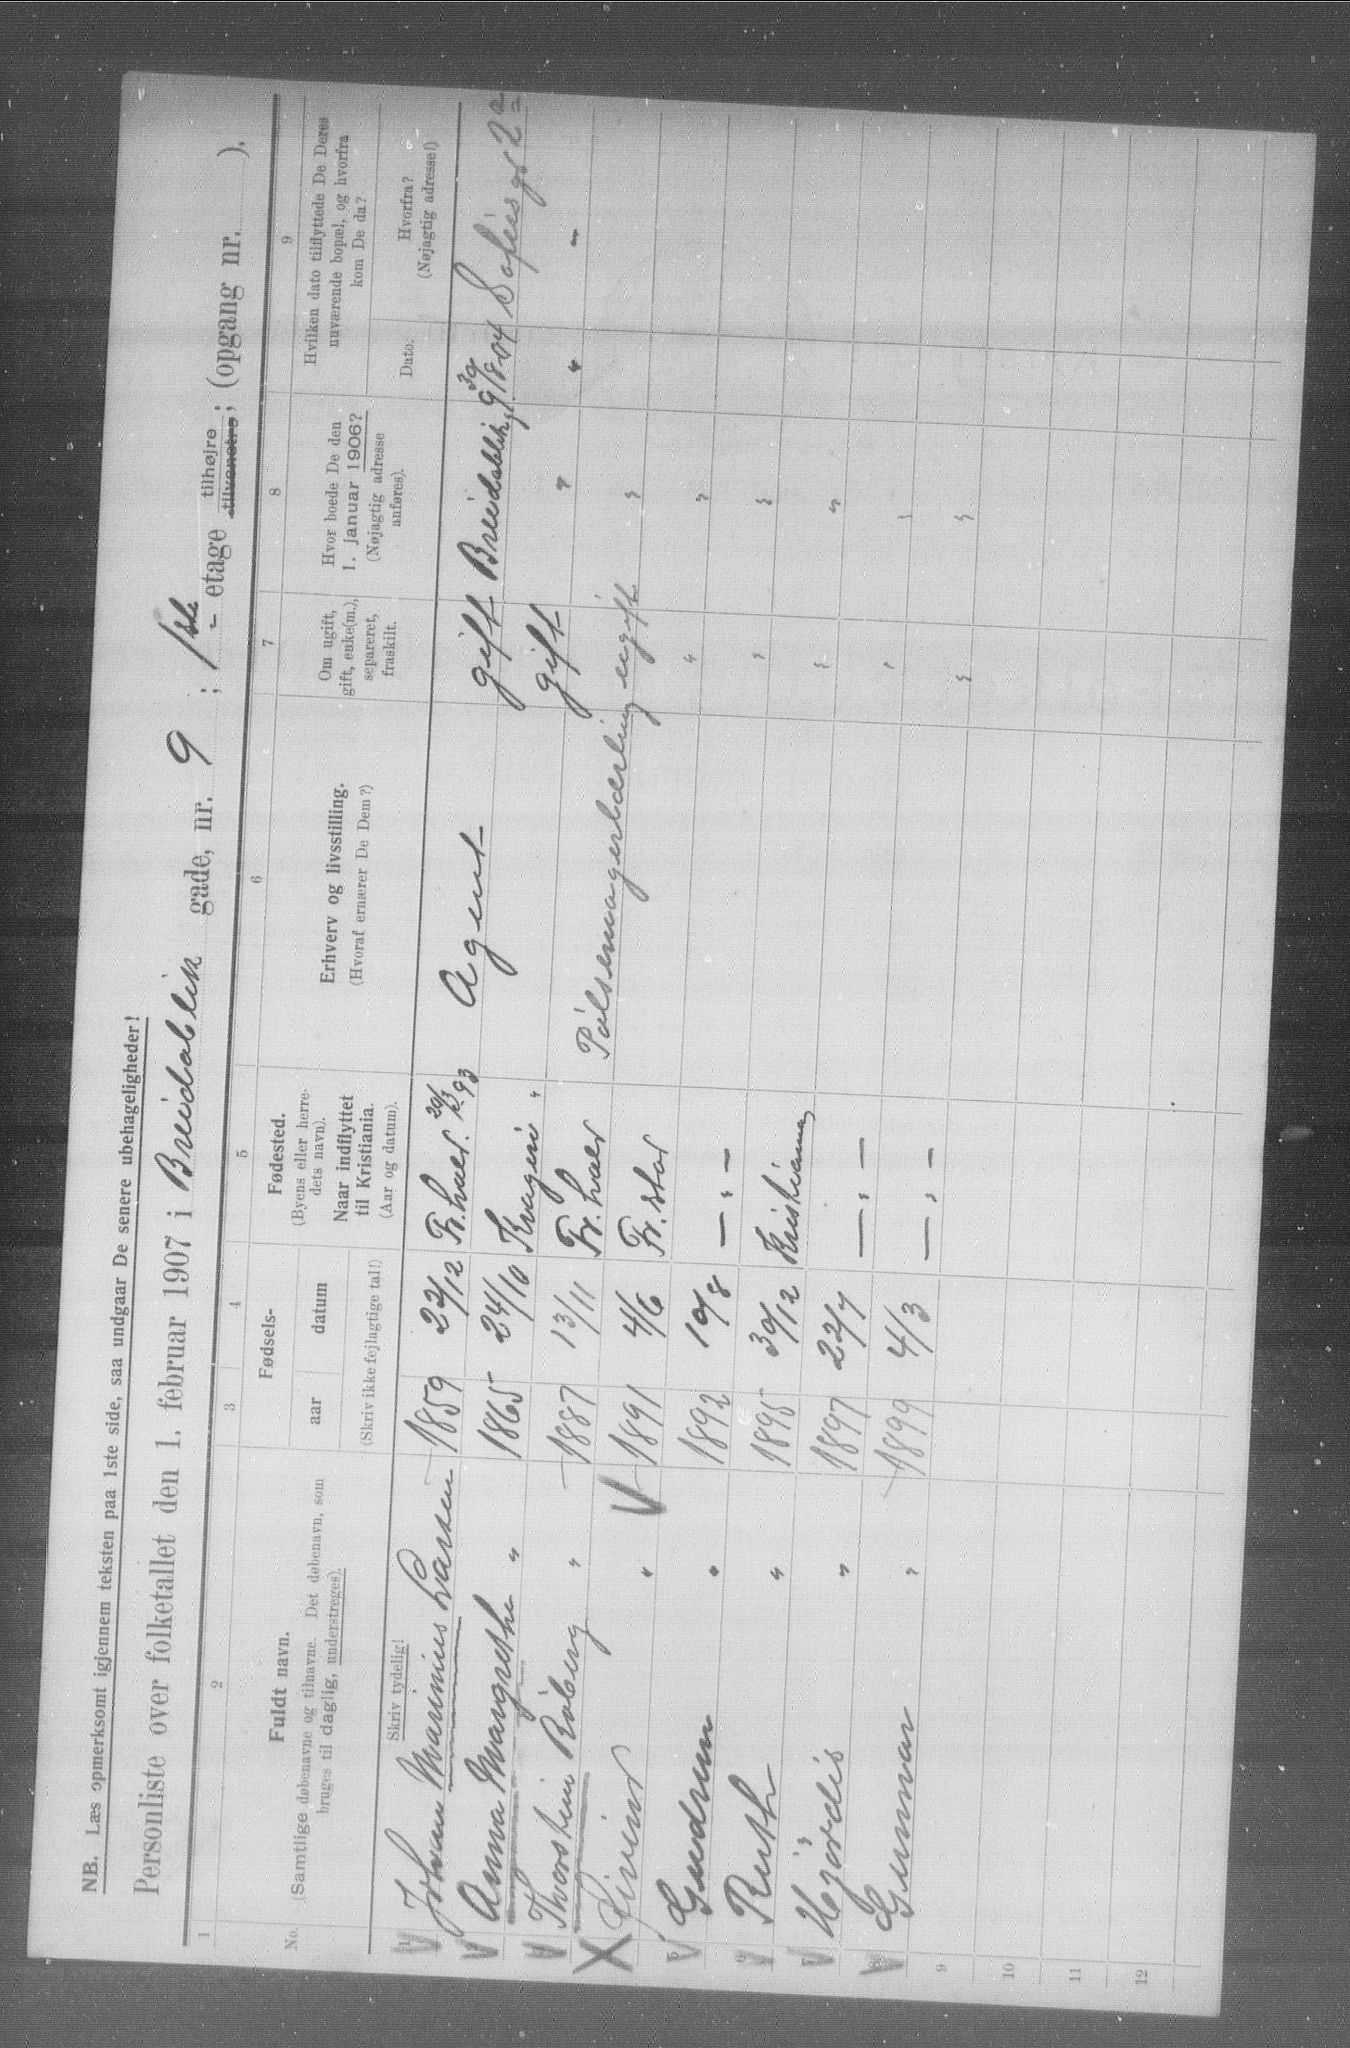 NB. Læs opmerksomt igjennem teksten paa 1ste side, saa undgaar De senere ubehageligheder!
Personliste over folketallet den 1. februar 1907 i Breidablik gade, nr. 9 ; 1ste - etage tilhøjre tilvenstre ; (opgang nr. ).
1 2 3 4 5 6 7 8 9
No.
Fuldt navn.
(Samtlige døbenavne og tilnavne. Det døbenavn, som
bruges til daglig, understreges).
Skriv tydelig!
Fødsels-
aar datum
(Skriv ikke fejlagtige tal!)
Fødested.
(Byens eller herre-
dets navn).
Naar indflyttet
til Kristiania.
(Aar og datum).
Erhverv og livsstilling.
(Hvoraf ernærer De Dem?)
Om ugift,
gift, enke(m.),
separeret,
fraskilt.
Hvor boede De den
1. januar 1906?
(Nøjagtig adresse
anføres).
Hvilken dato tilflyttede De Deres
nuværende bopæl, og hvorfra
kom De da?
Dato.
Hvorfra?
(Nøjagtig adresse!)
1 Johan Marinius Larsen 1859 23/12 Fr.hald. Agent gift Breidablik 9 Sofiesgd 2
Anna Margrethe " 1865 24/10 " gift " " "
Thorstein Roberg " 1887 13/11 Fr. hald Pølsemagerlærling ugift "
" 1891 4/6 Fr. stad " "
5 Gudrun " 1892 10/8 — " — " "
6 Ruth " 1895 30/12 Kristiania " "
7 Hjørdis " 1897 22/7 — " — " "
8 Gunnar " 1899 4/3 — " — " "
9
10
11
12